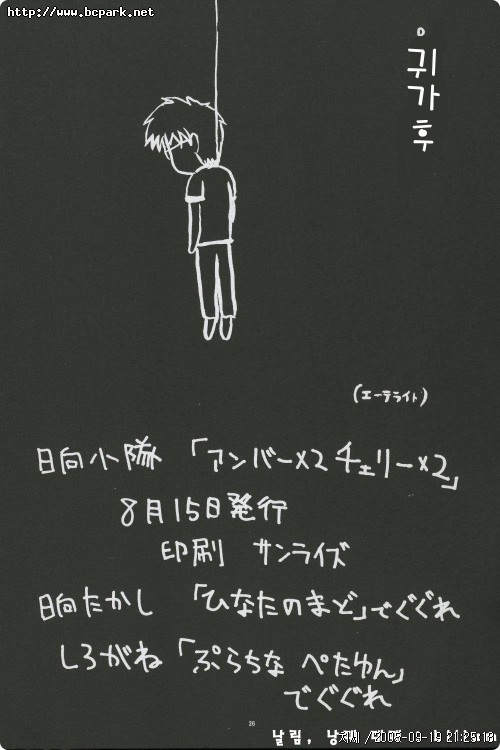 http://www.bcpark.net
귀가후
(エーテライト)
日向小隊 「アンバー×2 チェリー×2」
8月15日発行
印刷 サンライズ
日向たかし 「ひなたのまど」でぐぐれ
しろがね 「ぷらちな ぺたゆん」
でぐぐれ
26
날림,
2005-09-19 21:25:18